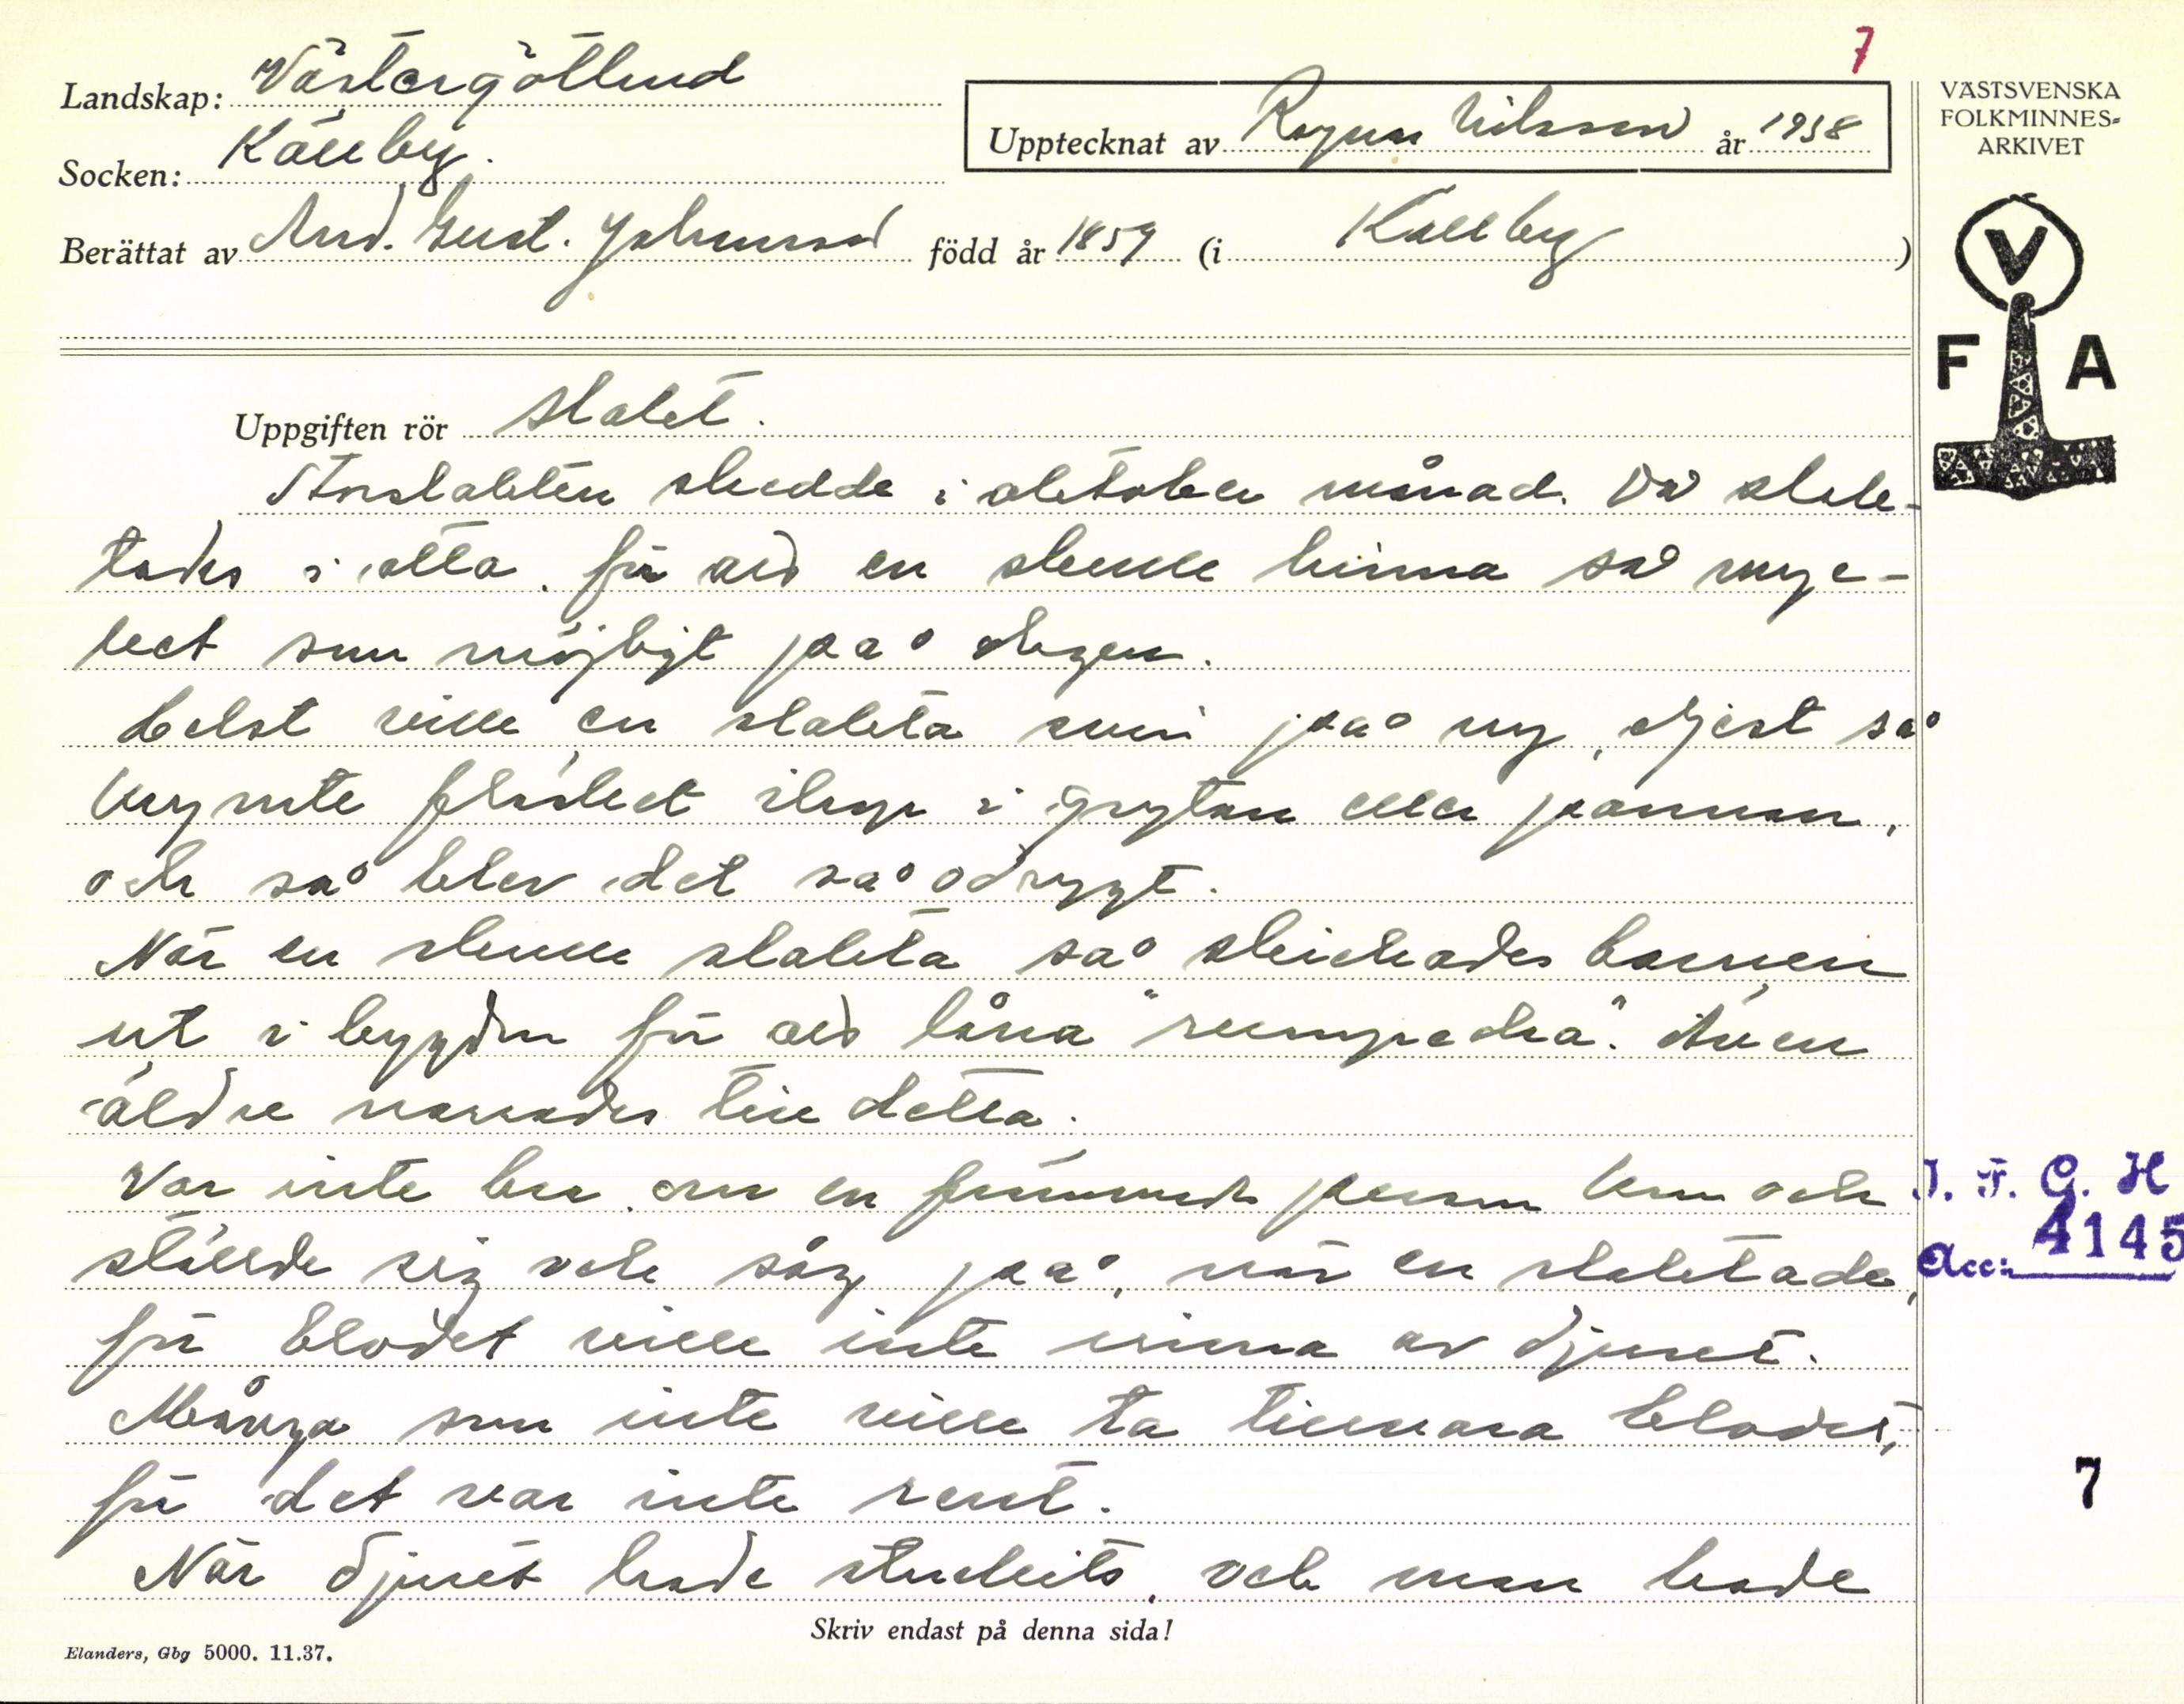 7
Landskap: Västergötland
Socken: Källby.
Upptecknat av Ragnar Nilsson år 1938
Berättat av And. Gust. Johansson född år 1859 (i Källby)
VÄSTSVENSKA
FOLKMINNES-
ARKIVET
V
F A
Uppgiften rör slakt.
Storslakten skedde i oktober månad. Då slak-
tades i åtta, för att en skulle hinna så myc-
ket som möjligt på dagen.
Helst ville en slakta svin på ny, ejest så
krympte fläsket ihop i grytan eller pannan,
och så blev det så odrygt.
När en skulle slakta så skickades barnen
ut i bygden för att låna "rumpedra". Även
äldre narrades till detta.
Var inte bra om en främmande person kom och
ställde sig och såg på, när en slaktade,
för blodet ville inte rinna av djuret.
Många som inte ville ta tillvara blodet,
för det var inte rent.
När djuret hade stuckits, och man hade
I. F. G. H
Acc: 4145
7
Skriv endast på denna sida!
Elanders, Gbg 5000. 11.37.